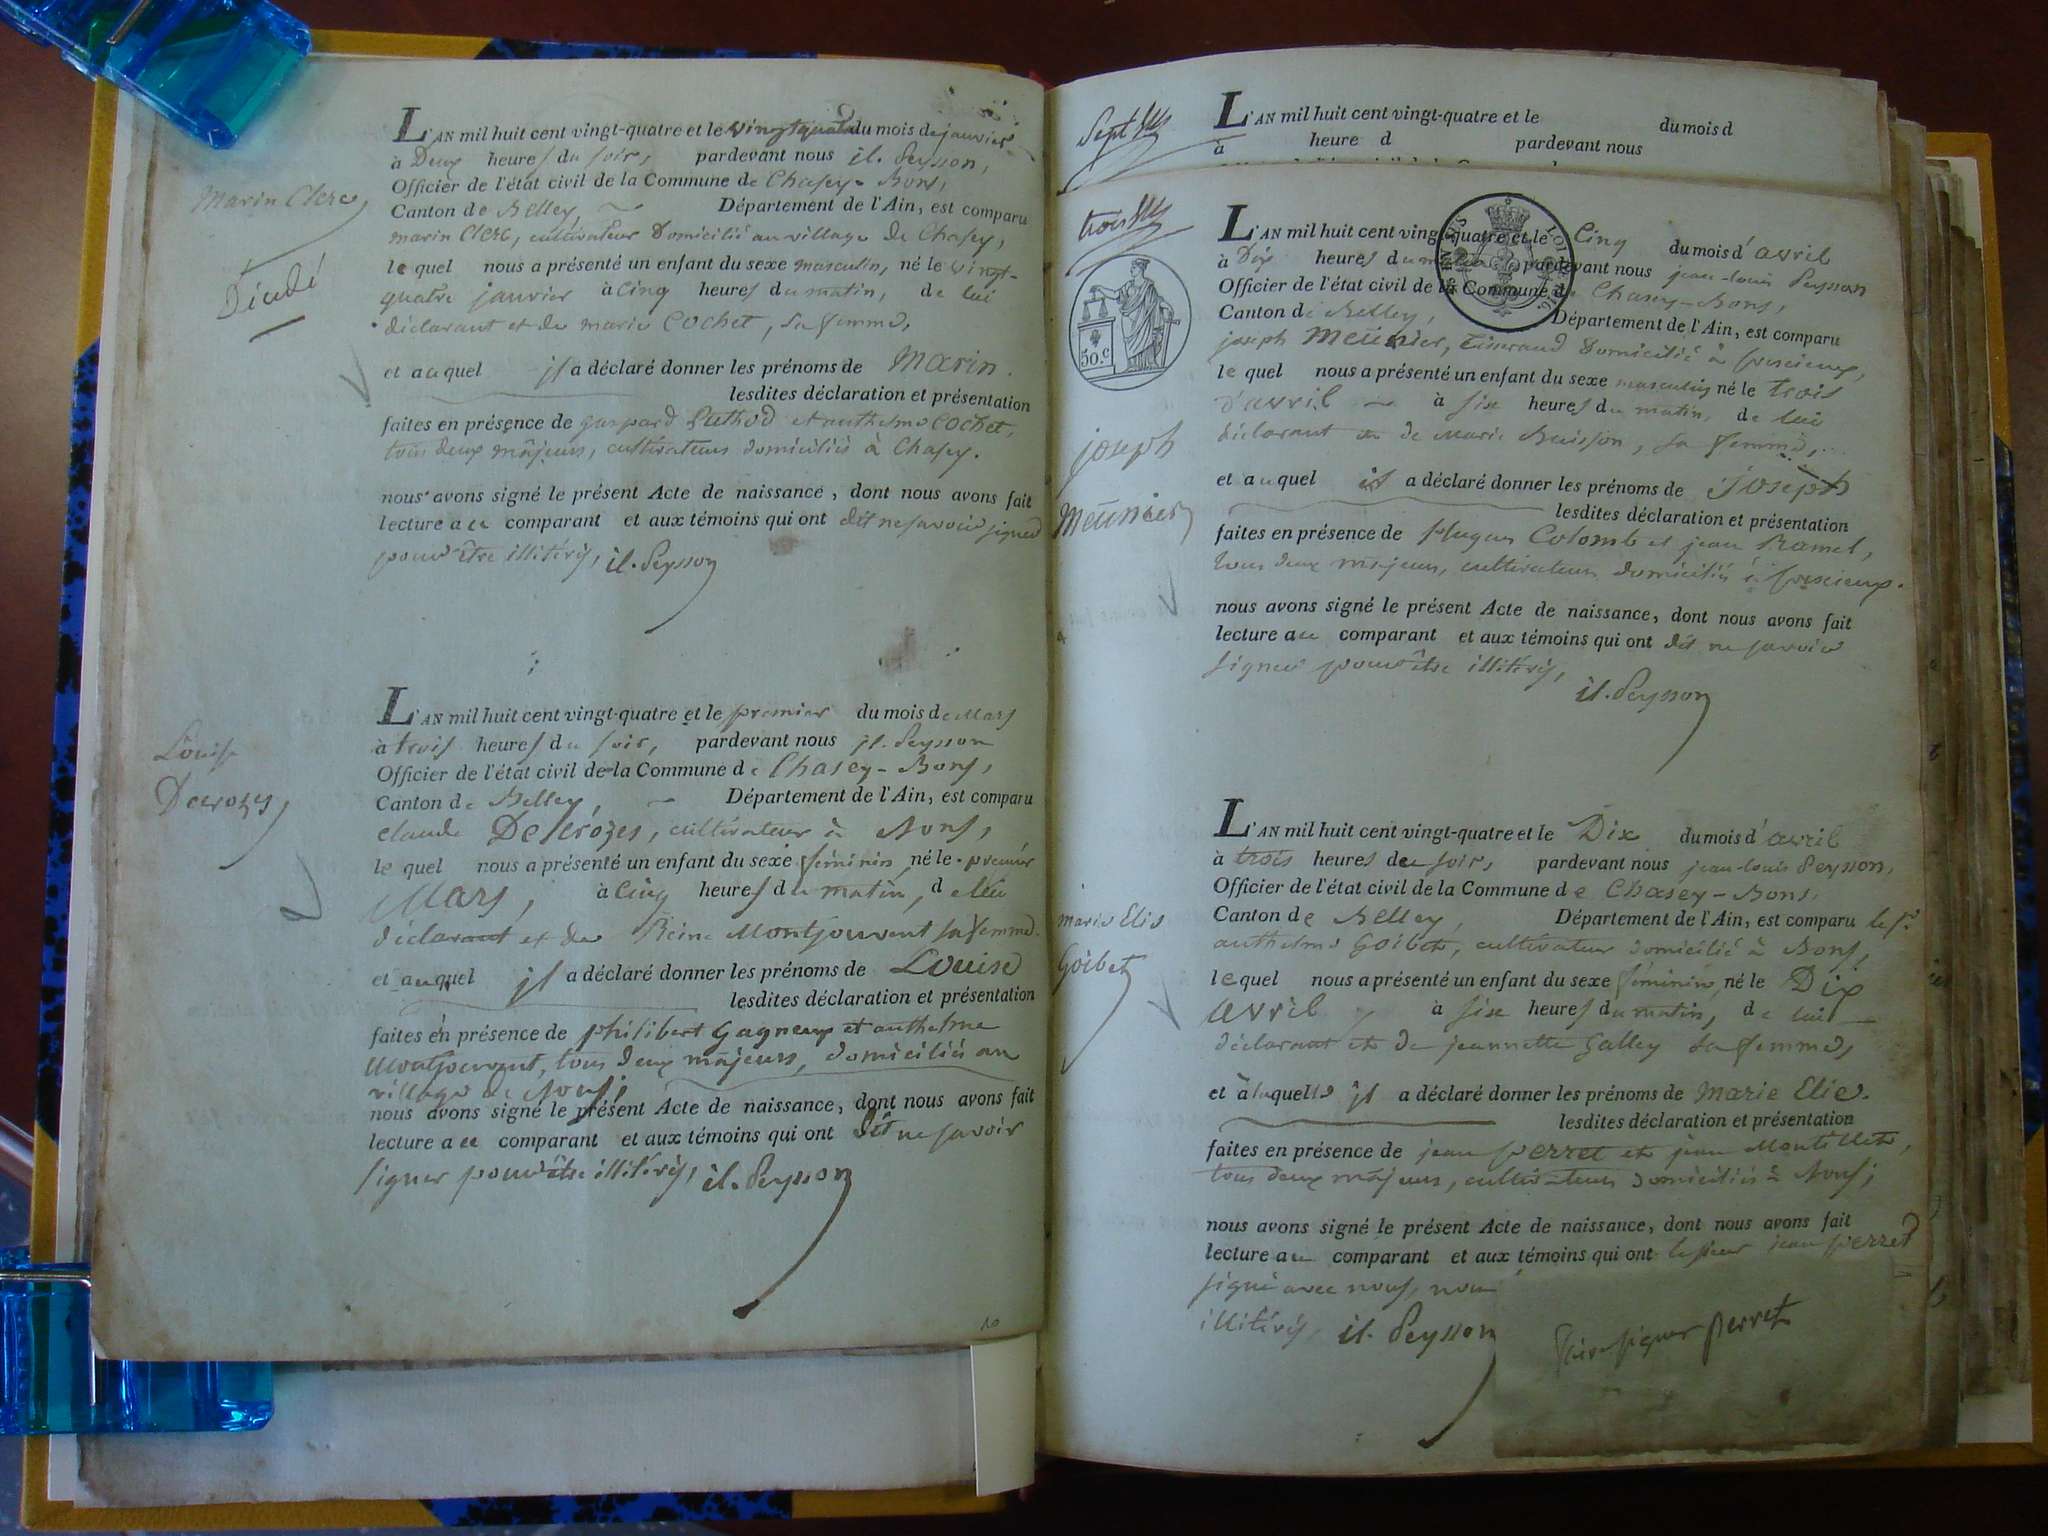 Marin Clerc
Décédé
L'AN mil huit cent vingt-quatre et le vingtquatre du mois de janvier
à Deux heures du soir, pardevant nous jl. Peysson,
Officier de l'état civil de la Commune de Chasey-Bons,
Canton de Belley, Département de l'Ain, est comparu
marin Clerc, cultivateur Domicilié au village de Chasey,
lequel nous a présenté un enfant du sexe masculin, né le vingt-
quatre janvier à cinq heures du matin, de lui
déclarant et de marie Cochet, sa femme,
et auquel jl a déclaré donner les prénoms de Marin.
lesdites déclaration et présentation
faites en présence de gaspard Luthod et anthelme Cochet,
tous deux majeurs, cultivateurs domiciliés à Chasey.
nous avons signé le présent Acte de naissance, dont nous avons fait
lecture au comparant et aux témoins qui ont dit ne savoir signer
pour être illitérés, jl. Peysson
Louise
Derozes
L'AN mil huit cent vingt-quatre et le premier du mois de Mars
à trois heures du soir, pardevant nous jl. Peysson
Officier de l'état civil de la Commune de Chasey-Bons,
Canton de Belley, Département de l'Ain, est comparu
claude Deserozes, cultivateur à Bons,
lequel nous a présenté un enfant du sexe féminin, né le premier
Mars, à cinq heures du matin, de lui
déclarant et de Reine Montjouvent sa femme.
et auquel jl a déclaré donner les prénoms de Louise
lesdites déclaration et présentation
faites en présence de philibert Gagneux et anthelme
Montjouvent, tous deux majeurs, domiciliés au
village de Bons;
nous avons signé le présent Acte de naissance, dont nous avons fait
lecture au comparant et aux témoins qui ont dit ne savoir
signer pour être illitérés, jl. Peysson
10
Sept
L'AN mil huit cent vingt-quatre et le du mois d
à heure d pardevant nous
trois
50.c
joseph
Meunier
L'AN mil huit cent vingt-quatre et le Cinq du mois d'avril
à Dix heures du matin pardevant nous jean-louis Peysson
Officier de l'état civil de la Commune de Chasey-Bons,
Canton de Belley, Département de l'Ain, est comparu
joseph Meunier, Domicilié à
lequel nous a présenté un enfant du sexe masculin, né le trois
d'avril à six heures du matin, de lui
déclarant et de Marie Buisson, sa femme,
et auquel il a déclaré donner les prénoms de Joseph
lesdites déclaration et présentation
faites en présence de Hugues Colomb et jean Ramel,
tous deux majeurs, cultivateurs domiciliés à
nous avons signé le présent Acte de naissance, dont nous avons fait
lecture au comparant et aux témoins qui ont dit ne savoir
signer pour être illitérés,
jl. Peysson
marie Elie
Goibet
L'AN mil huit cent vingt-quatre et le Dix du mois d'avril
à trois heures du soir, pardevant nous jean-louis Peysson,
Officier de l'état civil de la Commune de Chasey-Bons,
Canton de Belley, Département de l'Ain, est comparu le sr
anthelme Goibet, cultivateur domicilié à Bons,
lequel nous a présenté un enfant du sexe féminin, né le Dix
avril à six heures du matin, de lui
déclarant et de jeannette Galley sa femme,
et à laquelle jl a déclaré donner les prénoms de Marie Elie.
lesdites déclaration et présentation
faites en présence de jean perret et jean Montillet,
tous deux majeurs, cultivateurs domiciliés à Bons;
nous avons signé le présent Acte de naissance, dont nous avons fait
lecture au comparant et aux témoins qui ont le sieur jean perret
signé avec nous, non
illitérés, jl. Peysson
faire signer perret